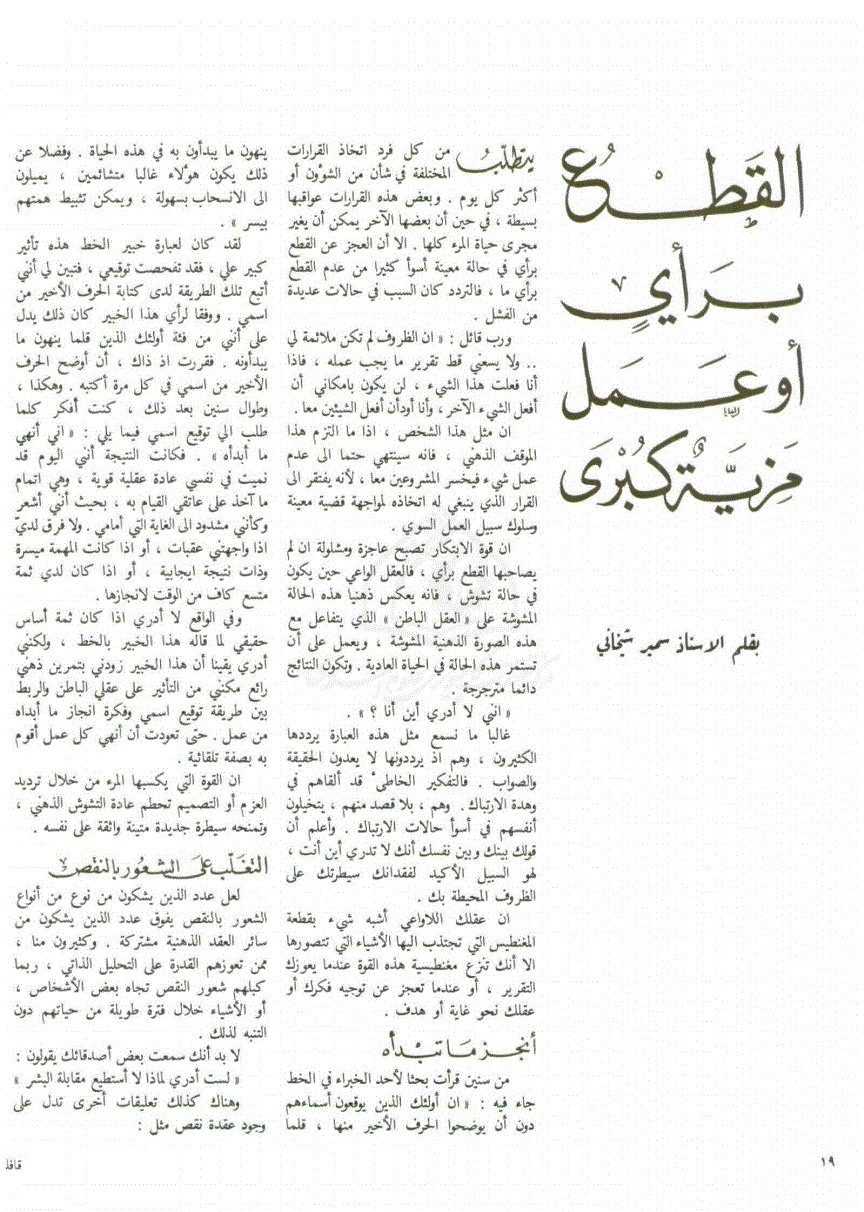 القطع
برأي
أو عمل
مزية كبرى
بقلم الاستاذ سمير شيخاني
يتطلب من كل فرد اتخاذ القرارات
المختلفة في شأن من الشؤون أو
أكثر كل يوم . وبعض هذه القرارات عواقبها
بسيطة ، في حين أن بعضها الآخر يمكن أن يغير
مجرى حياة المرء كلها . الا أن العجز عن القطع
برأي في حالة معينة أسوأ كثيرا من عدم القطع
برأي ما ، فالتردد كان السبب في حالات عديدة
من الفشل .
ورب قائل : « ان الظروف لم تكن ملائمة لي
.. ولا يسعني قط تقرير ما يجب عمله ، فاذا
أنا فعلت هذا الشيء ، لن يكون بامكاني أن
أفعل الشيء الآخر ، وأنا أود أن أفعل الشيئين معا .
ان مثل هذا الشخص ، اذا ما التزم هذا
الموقف الذهني ، فانه سينتهي حتما الى عدم
عمل شيء فيخسر المشروعين معا ، لأنه يفتقر الى
القرار الذي ينبغي له اتخاذه لمواجهة قضية معينة
وسلوك سبيل العمل السوي .
ان قوة الابتكار تصبح عاجزة ومشلولة ان لم
يصاحبها القطع برأي ، فالعقل الواعي حين يكون
في حالة تشوش ، فانه يعكس ذهنيا هذه الحالة
المشوشة على « العقل الباطن » الذي يتفاعل مع
هذه الصورة الذهنية المشوشة ، ويعمل على أن
تستمر هذه الحالة في الحياة العادية . وتكون النتائج
دائما مترجرجة .
« انني لا أدري أين أنا ؟ » .
غالبا ما نسمع مثل هذه العبارة يرددها
الكثيرون ، وهم اذ يرددونها لا يعدون الحقيقة
والصواب . فالتفكير الخاطئ قد ألقاهم في
وهدة الارتباك . وهم ، بلا قصد منهم ، يتخيلون
أنفسهم في أسوأ حالات الارتباك . وأعلم أن
قولك بينك وبين نفسك أنك لا تدري أين أنت ،
لهو السبيل الأكيد لفقدانك سيطرتك على
الظروف المحيطة بك .
ان عقلك اللاواعي أشبه شيء بقطعة
المغنطيس التي تجتذب اليها الأشياء التي تتصورها
الا أنك تنزع مغنطيسية هذه القوة عندما يعوزك
التقرير ، أو عندما تعجز عن توجيه فكرك أو
عقلك نحو غاية أو هدف .
أنجز ما تبدأه
من سنين قرأت بحثا لأحد الخبراء في الخط
جاء فيه : « ان أولئك الذين يوقعون أسماءهم
دون أن يوضحوا الحرف الأخير منها ، قلما
ينهون ما يبدأون به في هذه الحياة . وفضلا عن
ذلك يكون هؤلاء غالبا متشائمين ، يميلون
الى الانسحاب بسهولة ، ويمكن تثبيط همتهم
بيسر » .
لقد كان لعبارة خبير الخط هذه تأثير
كبير علي ، فقد تفحصت توقيعي ، فتبين لي أنني
أتبع تلك الطريقة لدى كتابة الحرف الأخير من
اسمي . ووفقا لرأي هذا الخبير كان ذلك يدل
على أنني من فئة أولئك الذين قلما ينهون ما
يبدأونه . فقررت اذ ذاك ، أن أوضح الحرف
الأخير من اسمي في كل مرة أكتبه . وهكذا ،
وطوال سنين بعد ذلك ، كنت أفكر كلما
طلب الي توقيع اسمي فيما يلي : « اني أنهي
ما أبدأه » . فكانت النتيجة أنني اليوم قد
نميت في نفسي عادة عقلية قوية ، وهي اتمام
ما آخذ على عاتقي القيام به ، بحيث أنني أشعر
وكأنني مشدود الى الغاية التي أمامي . ولا فرق لديّ
اذا واجهتني عقبات ، أو اذا كانت المهمة ميسرة
وذات نتيجة ايجابية ، أو اذا كان لدي ثمة
متسع كاف من الوقت لانجازها .
وفي الواقع لا أدري اذا كان ثمة أساس
حقيقي لما قاله هذا الخبير بالخط ، ولكنني
أدري يقينا أن هذا الخبير زودني بتمرين ذهني
رائع مكنني من التأثير على عقلي الباطن والربط
بين طريقة توقيع اسمي وفكرة انجاز ما أبدأه
من عمل . حتى تعودت أن أنهي كل عمل أقوم
به بصفة تلقائية .
ان القوة التي يكسبها المرء من خلال ترديد
العزم أو التصميم تحطم عادة التشوش الذهني ،
وتمنحه سيطرة جديدة متينة واثقة على نفسه .
التغلب على الشعور بالنقص
لعل عدد الذين يشكون من نوع من أنواع
الشعور بالنقص يفوق عدد الذين يشكون من
سائر العقد الذهنية مشتركة . وكثيرون منا ،
ممن تعوزهم القدرة على التحليل الذاتي ، ربما
كبلهم شعور النقص تجاه بعض الأشخاص ،
أو الأشياء خلال فترة طويلة من حياتهم دون
التنبه لذلك .
لا بد أنك سمعت بعض أصدقائك يقولون :
« لست أدري لماذا لا أستطيع مقابلة البشر »
وهناك كذلك تعليقات أخرى تدل على
وجود عقدة نقص مثل :
١٩
قافل